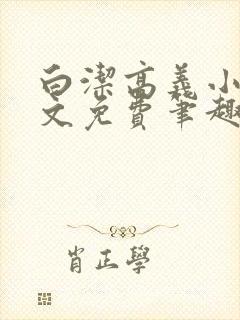 白潔高義小
文免費筆趣
肖正學